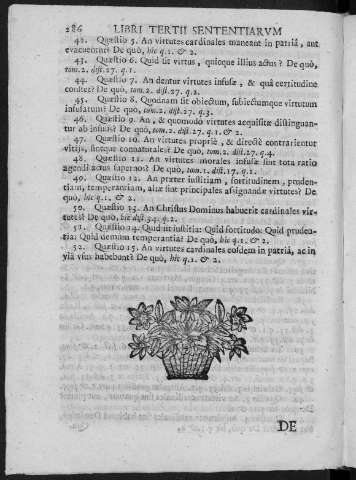 286 LIBRI TERTII SENTENTIARVM
42. Quæstio 5. An virtutes cardinales maneant in patriâ, aut
evacuentur? De quò, hic q.1. & 2.
43. Quæstio 6. Quid sit virtus, quisque illius actus? De quò,
tom.2. dist.27. q.1.
44. Quæstio 7. An dentur virtutes infusæ, & quâ certitudine
constet? De quò, tom.2. dist.27. q.2.
45. Quæstio 8. Quodnam sit obiectum, subiectumque virtutum
infusarum? De quò, tom.2. dist.27. q.3.
46. Quæstio 9. An, & quomodo virtutes acquisitæ distinguan-
tur ab infusis? De quò, tom.2. dist.27. q.1. & 2.
47. Quæstio 10. An virtutes propriè, & directè contrarientur
vitijs, sintque connaturales? De quò, tom.2. dist.27. q.4.
48. Quæstio 11. An virtutes morales infusæ sint tota ratio
agendi actus supernos? De quò, tom.2. dist.17. q.1.
49. Quæstio 12. An præter iustitiam, fortitudinem, pruden-
tiam, temperantiam, aliæ sint principales assignandæ virtutes? De
quò, hic q.1. & 2.
50. Quæstio 13. An Christus Dominus habuerit cardinales vir-
tutes? De quò, hic dist.34. q.2.
51. Quæstio 14. Quid sit iustitia: Quid fortitudo: Quid pruden-
tia: Quid demum temperantia? De quò, hic q.1. & 2.
52. Quæstio 15. An virtutes cardinales eosdem in patriâ, ac in
viâ vsus habebont? De quò, hic q.1. & 2.
DE